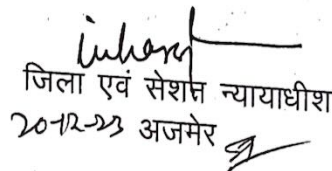 जिला एवं सेशन न्यायाधीश
20-12-23 अजमेर